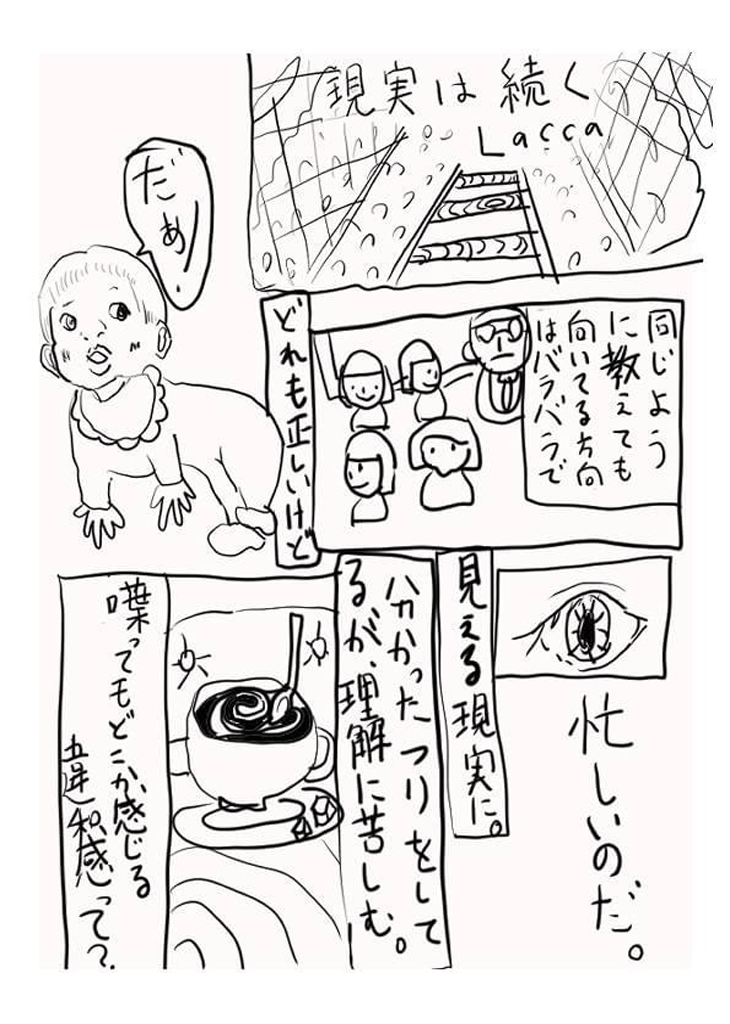 現実は続く
Lacca
だぁ!
同じよう
に教えても
向いてる方向
はバラバラで
どれも正しいけど
忙しいのだ。
見える現実に。
分かったつりをして
るが、理解に苦しむ。
喋ってもどこか感じる
違和感って?